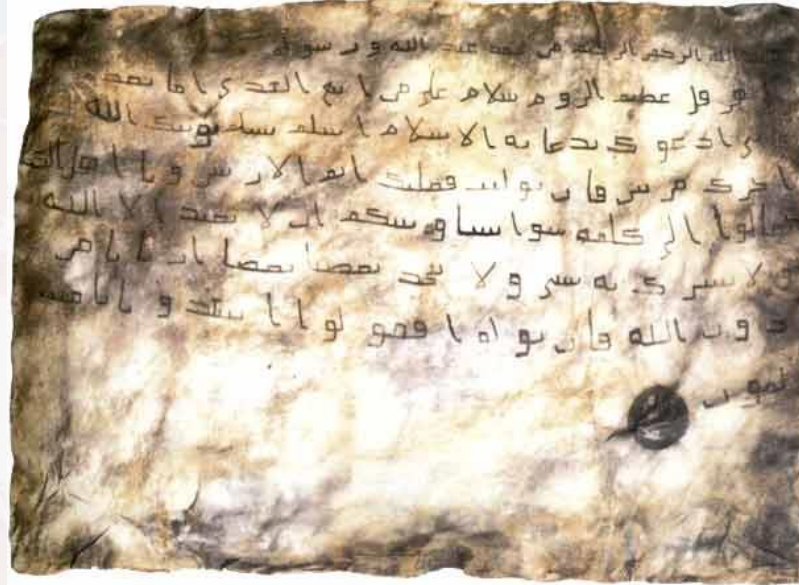 الله الرحمن الرحيم من محمد عبد الله ورسوله
هرقل عظيم الروم سلام على من اتبع الهدى اما بعد
ادعوك بدعاية الاسلام اسلم تسلم يوتك الله
اجرك مرتين فان توليت فعليك اثم ويا اهل
تعالوا الى كلمة سوا بيننا وبينكم ان لا نعبد الا الله
ولا نشرك به ولا يتخذ بعضنا بعضا اربابا من
دون الله فان تولوا فقولوا اشهدوا بانا مسلـ
ـمون